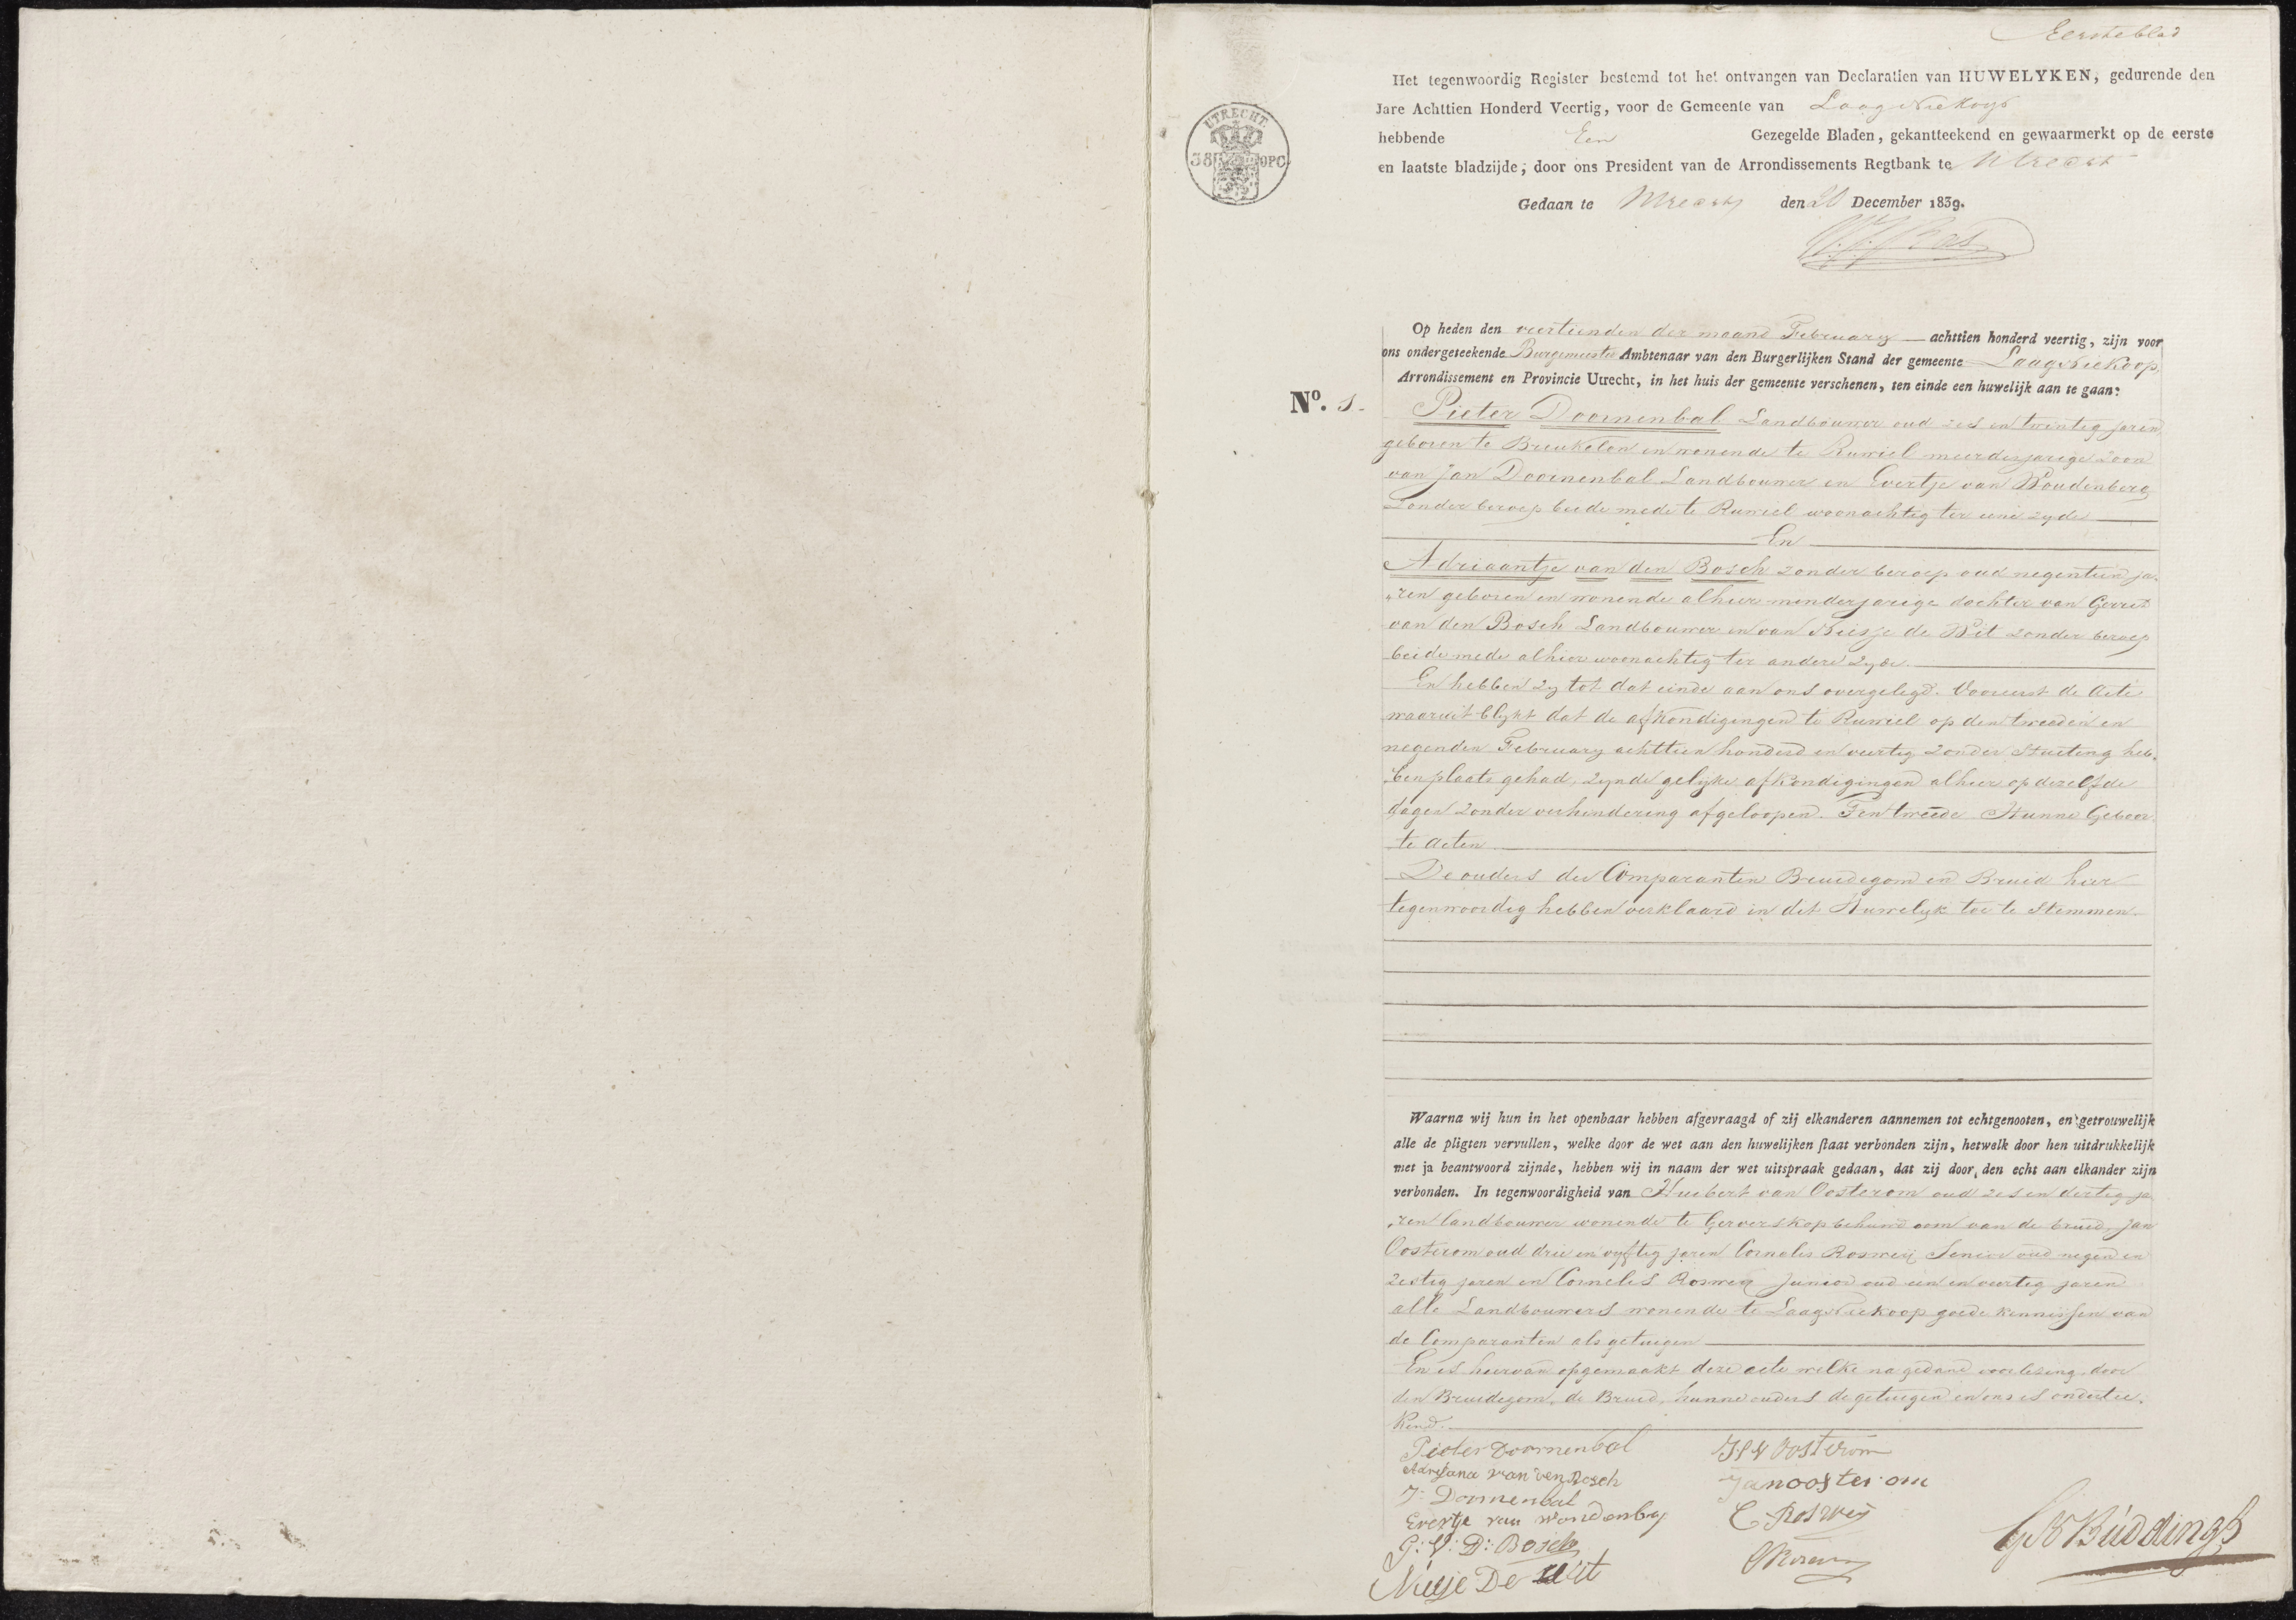 Eerste blad
Het tegenwoordig Register bestemd tot het ontvangen van Declaratien van HUWELYKEN, gedurende den
Jare Achttien Honderd Veertig, voor de Gemeente van Laag Niekoop
hebbende Een Gezegelde Bladen, gekantteekend en gewaarmerkt op de eerste
en laatste bladzijde, door ons President van de Arrondissements Regtbank te Utrecht
UTRECHT
38 OPC
Gedaan te Utrecht den December 1839.
Op heden den veertienden der maand February achttien honderd veertig, zijn voor
ons ondergeteekende Burgemeester Ambtenaar van den Burgerlijken Stand der gemeente Laag Niekoop
Arrondissement en Provincie Utrecht, in het huis der gemeente verschenen, ten einde een huwelijk aan te gaan:
No. 1.
Pieter Doornenbal Landbouwer oud zes en twintig jaren,
geboren te Breukelen en wonende te Ruwiel meerderjarige zoon
van Jan Doornenbal Landbouwer en Evertje van Woudenberg
zonder beroep beide mede te Ruwiel woonachtig ter eene zyde
En
Adriaantje van den Bosch zonder beroep oud negentien ja-
„ren geboren en wonende alhier minderjarige dochter van Gerrit
van den Bosch Landbouwer en van Niesje de Wit zonder beroep
beide mede alhier woonachtig ter andere zyde.
En hebben zy tot dat einde aan ons overgelegd. Vooreerst de Acte
waaruit blykt dat de afkondigingen te Ruwiel op den tweeden en
negenden February achttien honderd en veertig zonder stuiting heb-
ben plaats gehad, zynde gelyke afkondigingen alhier op dezelfde
dagen zonder verhindering afgeloopen. Ten tweede Hunne Geboor-
te Acten
De ouders der Comparanten Bruidegom en Bruid hier
tegenwoordig hebben verklaard in dit Huwelyk toe te stemmen.
Waarna wij hun in het openbaar hebben afgevraagd of zij elkanderen aannemen tot echtgenooten, en getrouwelijk
alle de pligten vervullen, welke door de wet aan den huwelijken staat verbonden zijn, hetwelk door hen uitdrukkelijk
met ja beantwoord zijnde, hebben wij in naam der wet uitspraak gedaan, dat zij door den echt aan elkander zijn
verbonden. In tegenwoordigheid van Huibert van Oosterom oud zes en dertig ja
„ren landbouwer wonende te Gerverskop behuwd oom van de bruid, Jan
Oosterom oud drie en vyftig jaren Cornelis Rosweij Senior oud negen en
zestig jaren en Cornelis Rosweij Junior oud een en veertig jaren
alle Landbouwers wonende te Laag Niekoop goede kennissen van
de Comparanten als getuigen
En is hiervan opgemaakt deze acte welke na gedane voorlezing door
den Bruidegom, de Bruid, hunne ouders de getuigen en ons is ondertee-
kend.
Pieter Doornenbal
Adrijana van den Bosch
J: Dornenbal
Evertje van Woudenberg
G: V: D: Bosch
Niesje De Wit
H V Oosterom
Jan oosterom
C Roswey
C Roswey
G Buddingh